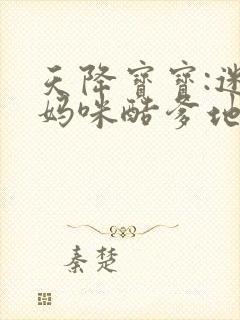 天降寶寶:迷
媽咪酷爹地
秦楚